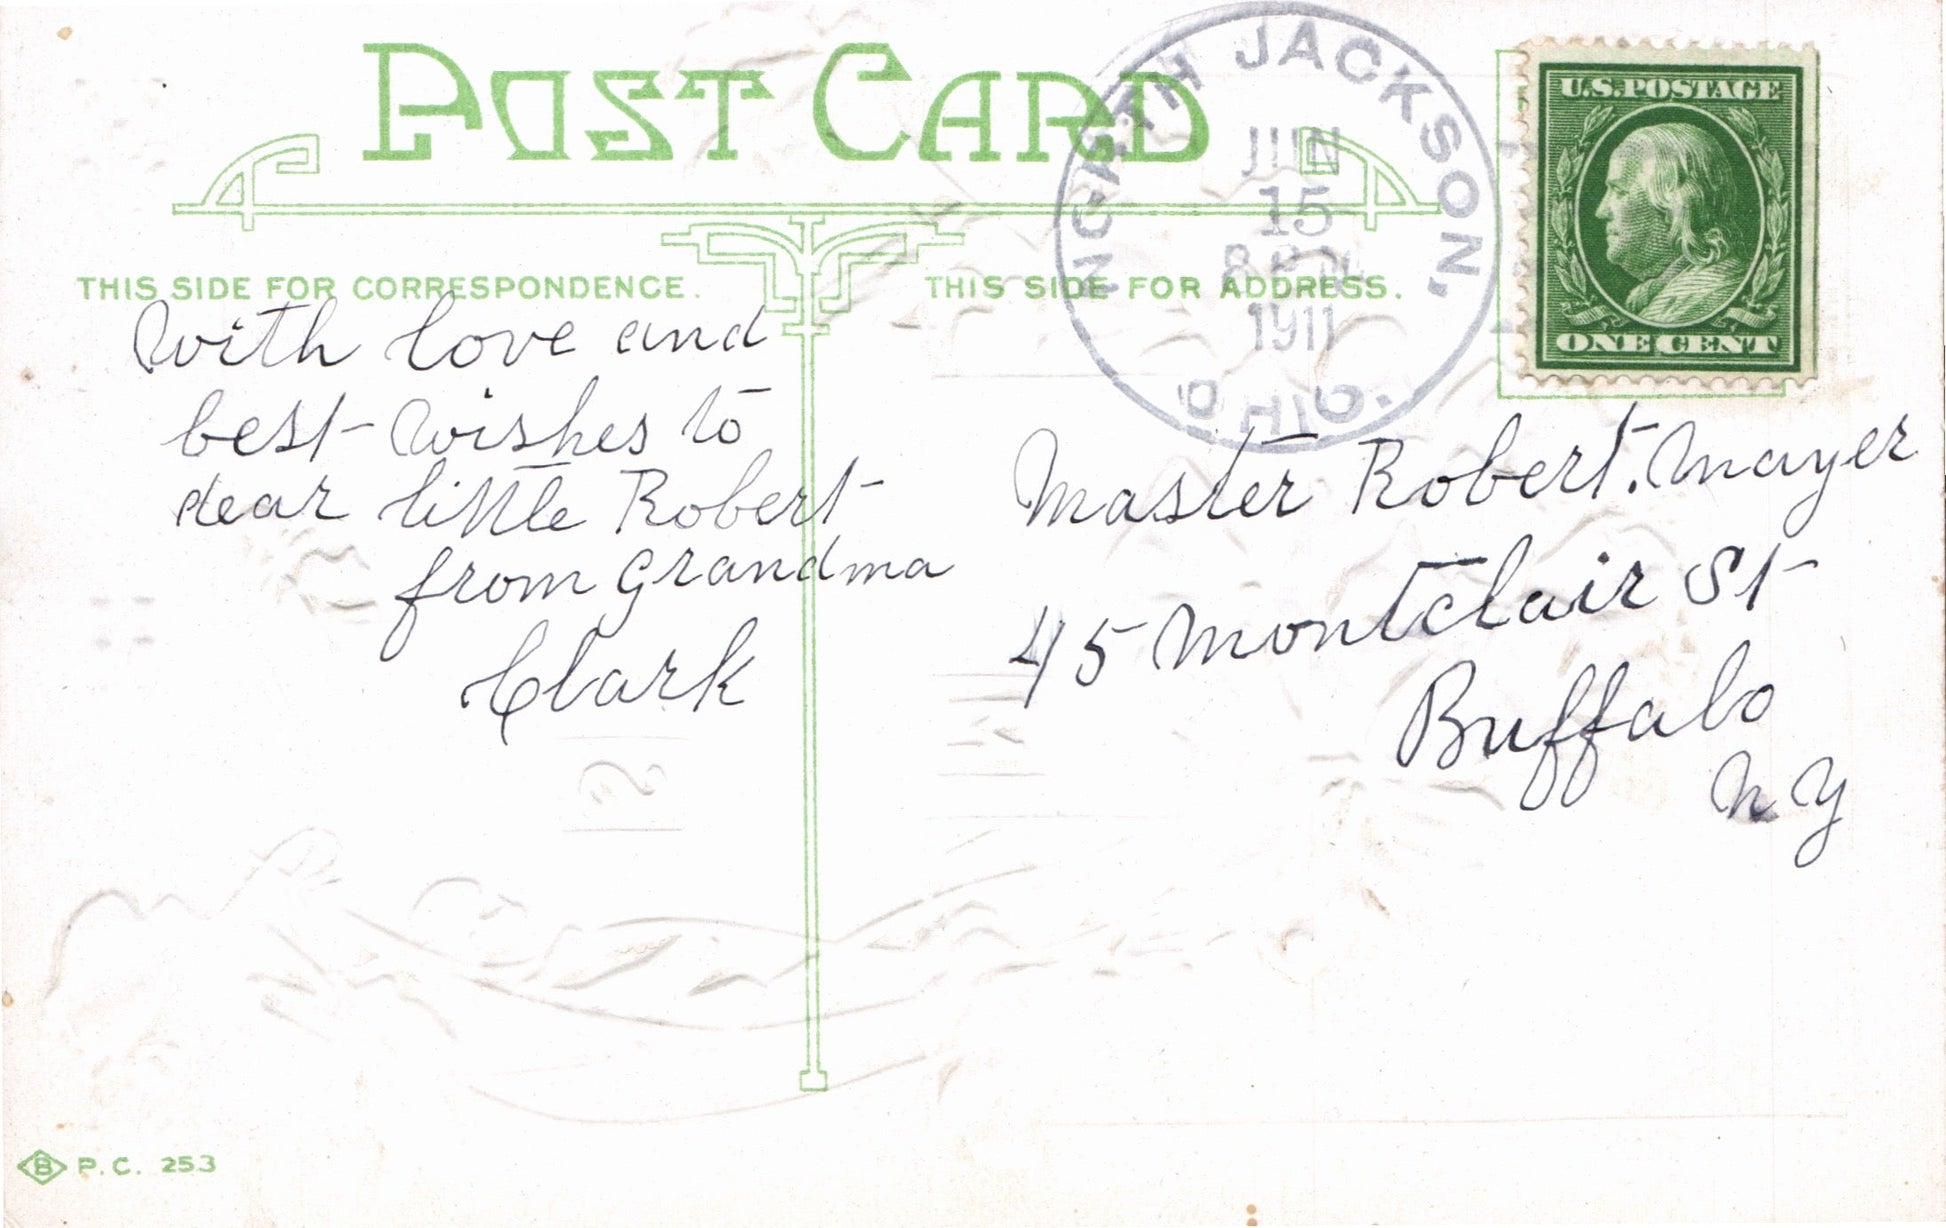 POST CARD
NORTH JACKSON,
JUN
15
8 PM
1911
OHIO.
U.S. POSTAGE
ONE CENT
THIS SIDE FOR CORRESPONDENCE.
With love and
best wishes to
dear little Robert
from Grandma
Clark
THIS SIDE FOR ADDRESS.
Master Robert. Mayer
45 Montclair St
Buffalo
N Y
B P.C. 253